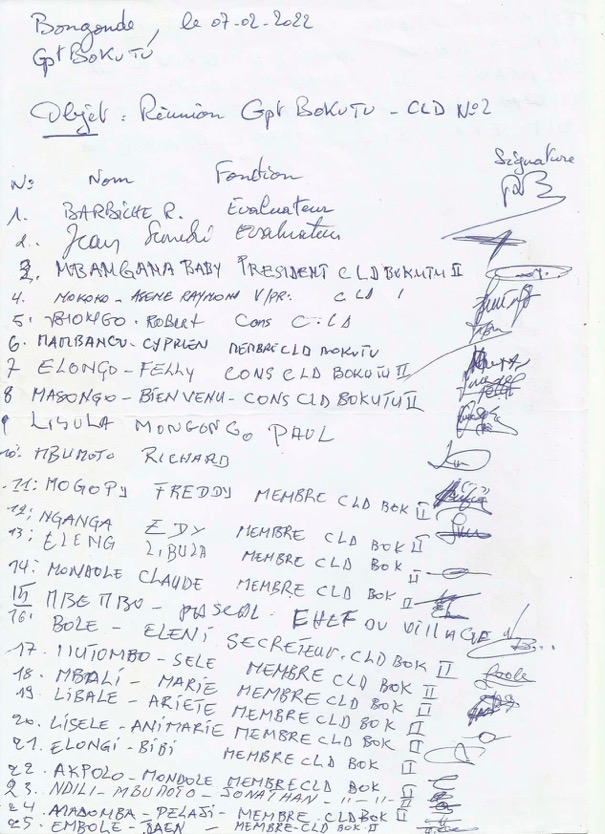 Bongonde, le 07-02-2022
Gpt BOKUTU
Objet : Réunion Gpt BOKUTU - CLD N°2
N° Nom Fonction Signature
1. BARBICHE R. Evaluateur
2. Jean Evaluateur
3. MBANGANA BABY PRESIDENT CLD BOKUTU II
4. MOKOKO - RAYMOND V/PR. CLD
5. Robert Cons CLD
6. MAMBANCU - CYPRIEN MEMBRE CLD BOKUTU
7 ELONGO - FELLY CONS CLD BOKUTU II
8 MASONGO - BIENVENU - CONS CLD BOKUTU II
9 LISULA MONGONGO PAUL
10: MBUMOTO RICHARD
11: MOGOPY FREDDY MEMBRE CLD BOK II
12: NGANGA EDY MEMBRE CLD BOK II
13: ELENG LIBULA MEMBRE CLD BOK II
14: MONDOLE CLAUDE MEMBRE CLD BOK II
15 MBEMBU - PASCAL. CHEF DU VILLAGE
16: BOLE - ELENI SECRETEUR. CLD BOK II
17. MUTOMBO - SELE MEMBRE CLD BOK II
18. MBALI - MARIE MEMBRE CLD BOK II
19. LIBALE - ARIETE MEMBRE CLD BOK II
20. LISELE - ANIMARIE MEMBRE CLD BOK II
21. ELONGI - BIBI MEMBRE CLD BOK II
22. AKPOLO - MONDOLE MEMBRE CLD BOK II
23. NDILI - MBUMOTO - JONATHAN - 11 - 11 - II
24 - PELAJI - MEMBRE CLD BOK II
25. EMBOLE - DAEN - MEMBRE - CLD BOK II